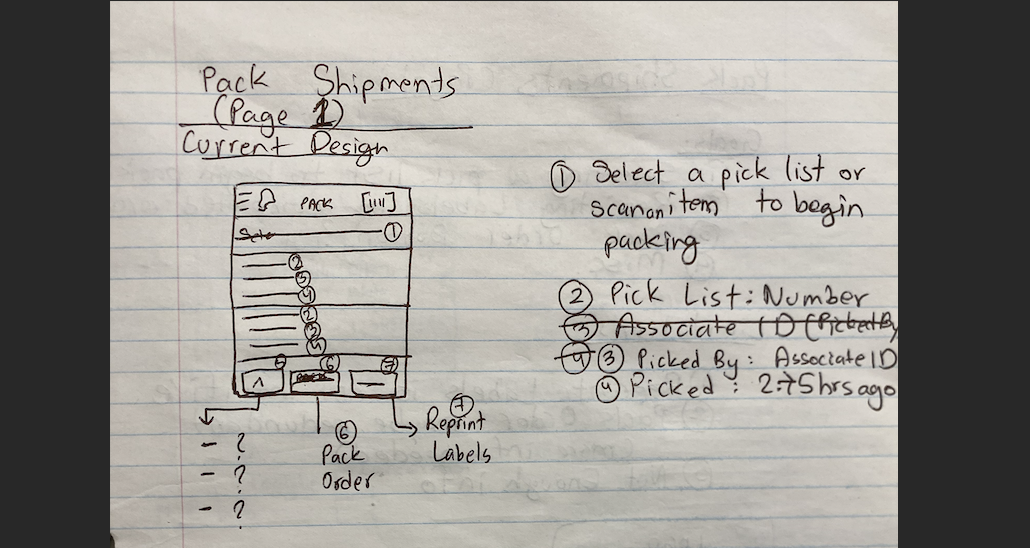 Pack Shipments
(Page 1)
Current Design
PACK
①
②
③
④
②
③
④
⑤ ⑥ ⑦
^
- ?
- ?
- ?
⑥
Pack
Order
⑦
Reprint
Labels
① Select a pick list or
scan an item to begin
packing
② Pick List: Number
③ Associate ID (Picked By
④ ③ Picked By: Associate ID
④ Picked: 2.75hrs ago